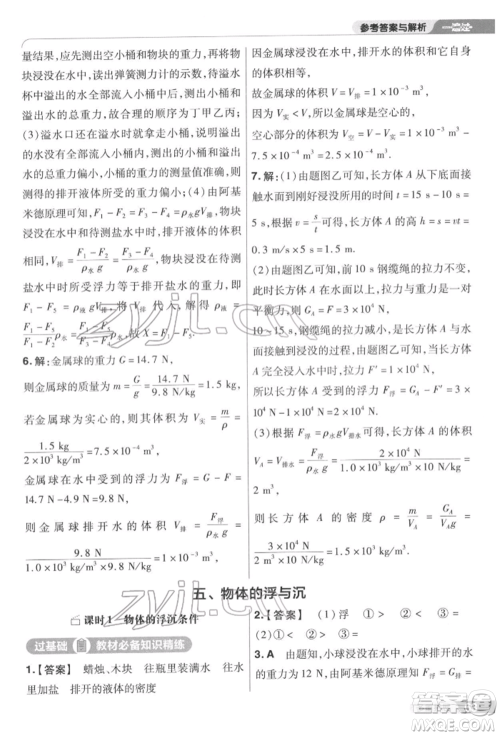 参考答案与解析
量结果,应先测出空小桶和物块的重力,再将
物块浸没在水中,读出弹簧测力计示数,待溢水
杯中溢出的水全部流入小桶中,测出小桶和
溢出水的总重力,故合理的顺序为丁甲乙丙;
(3)溢水口还在溢水时就拿走小桶,会导致溢
出的水没有全部流入小桶内,小桶和溢出水的
总重力偏小,计算得到的溢出水的重力偏小,
测得的排开液体所受的重力偏小;(4)由阿基
米德原理可知F₁-F₂=F₄-F₃=ρ水gV排,物块
浸没在水中和待测盐水中时,V排相等,在待测
盐水中时所受的浮力为
F₁-F₅=ρ液gV排,将V排代入,解得ρ液=
(F₁-F₅)/(F₁-F₂)ρ水,故X=F₁-F₂。
6.解:金属球的重力G=14.7 N,
则金属球的质量为m=G/g=14.7 N/9.8 N/kg=1.5 kg,
若金属球为实心的,则其体积为V实=m/ρ=
1.5 kg/2×10³ kg/m³=7.5×10⁻⁴ m³,
金属球在水中受到的浮力为F浮=G-F=
14.7 N-4.9 N=9.8 N,
则金属球排开水的体积V排=F浮/ρ水g=
9.8 N/1.0×10³ kg/m³×9.8 N/kg=1×10⁻³ m³,
因为金属球浸没在水中,排开水的体积等于金
属球的体积,
故金属球的体积V=V排=1×10⁻³ m³,
因为V实<V,所以金属球是空心的,
空心部分的体积为V空=V-V实=1×10⁻³ m³-
7.5×10⁻⁴ m³=2.5×10⁻⁴ m³。
7.解:(1)由题图乙可知,长方体A从下底面接
触水面到刚好浸没所用的时间t=5 s,
根据v=s/t可得,长方体A的高h=s=vt=
0.3 m/s×5 s=1.5 m。
(2)由题图乙可知,前10 s钢缆绳的拉力不变,
且大小等于长方体A的重力,由拉力与重力是
一对平衡力,则F=3×10⁴ N,则G_A=F=3×10⁴ N,
10~15 s,钢缆绳的拉力变小,长方体A逐渐浸
入水中,15 s后钢缆绳的拉力F'=1×10⁴ N,
所以长方体A受到的浮力F浮=G_A-F'=
3×10⁴ N-1×10⁴ N=2×10⁴ N。
(3)根据F浮=ρ水gV排水可得,长方体A的体积
V_A=V排水=F浮/ρ水g=2×10⁴ N/1.0×10³ kg/m³×10 N/kg=
2 m³,
则长方体A的密度ρ=m/V_A=G_A/V_Ag=
3×10⁴ N/2 m³×10 N/kg=1.5×10³ kg/m³。
五、物体的浮与沉
课时1 物体的浮沉条件
过基础 教材必备知识精练
1.【答案】 蜡烛、木块 往瓶里灌满水 往水
里加盐 排开的液体的密度
2.【答案】 (1)浮 ① (2)> > (3)①
③
3.A 由题知,小球浸没在水中,溢出的水的重
力为12 N,由阿基米德原理可知,小球浸没在